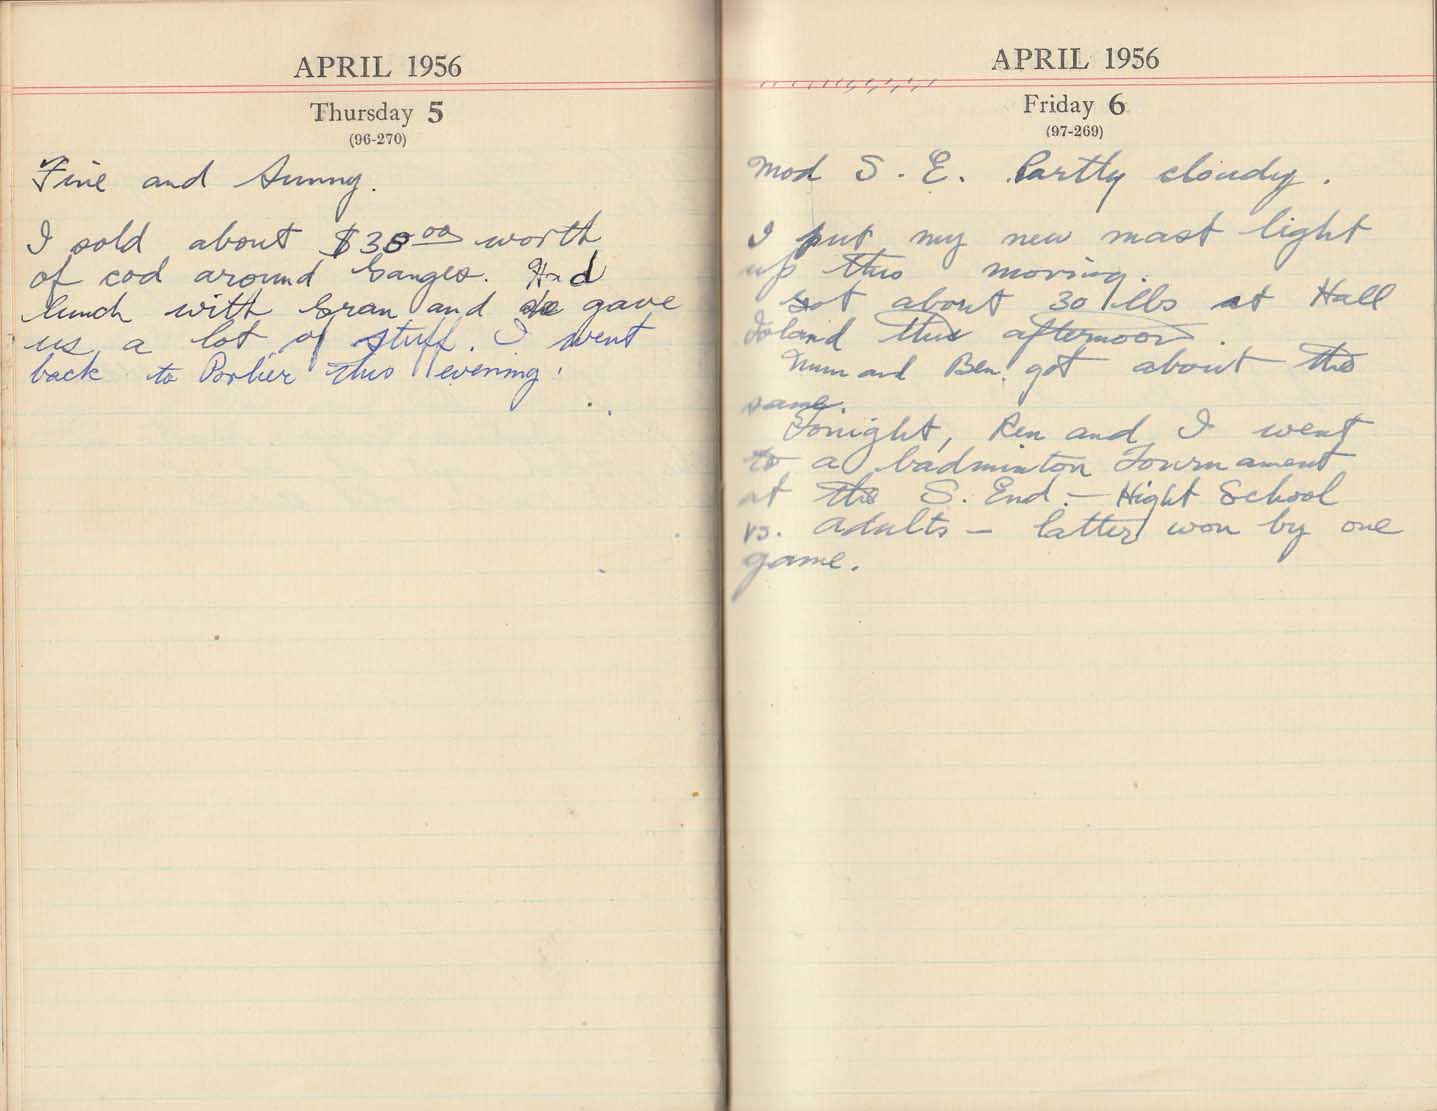 APRIL 1956
Thursday 5
(96-270)
Fine and Sunny.
I sold about $38 00 worth
of cod around Ganges. Had
lunch with Gran and she gave
us a lot of stuff. I went
back to Porlier this evening.
APRIL 1956
Friday 6
(97-269)
Mod S. E. Partly cloudy.
I put my new mast light
up this morning.
Got about 30 lbs at Hall
Island this afternoon.
Mum and Ben got about the
same.
Tonight, Ken and I went
to a badminton Tournament
at the S. End. - Hight School
vs. adults - latter won by one
game.